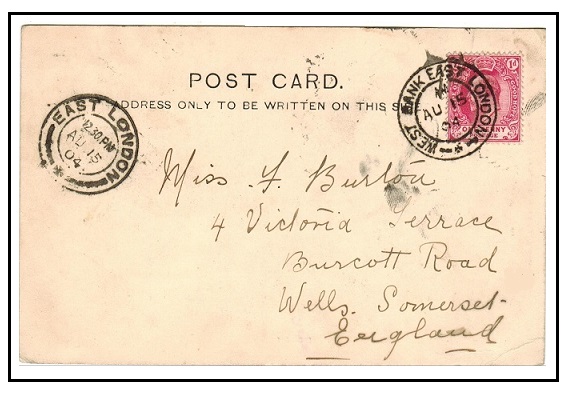 POST CARD.
ADDRESS ONLY TO BE WRITTEN ON THIS S
WEST BANK EAST LONDON
M
AU 15
04
1d
EAST LONDON
12.30 PM
AU 15
04
Miss F. Burton
4 Victoria Terrace
Burcott Road
Wells. Somerset.
England